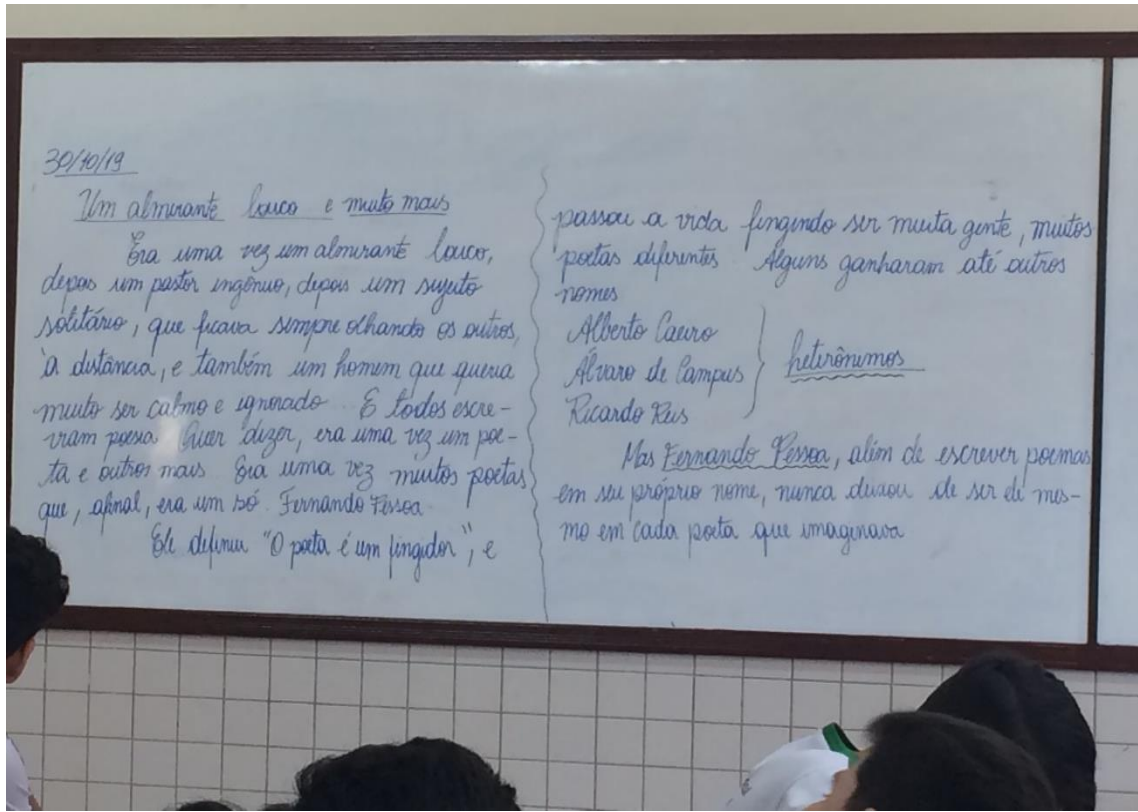 30/10/19
Um almirante louco e muito mais
Era uma vez um almirante louco,
depois um pastor ingênuo, depois um sujeito
solitário, que ficava sempre olhando os outros,
à distância, e também um homem que queria
muito ser calmo e ignorado. E todos escre-
viam poesia. Quer dizer, era uma vez um poe-
ta e outros mais. Era uma vez muitos poetas
que, afinal, era um só. Fernando Pessoa.
Ele definiu "O poeta é um fingidor", e
passou a vida fingindo ser muita gente, muitos
poetas diferentes. Alguns ganharam até outros
nomes
Alberto Caeiro
Álvaro de Campus
Ricardo Reis
heterônimos
Mas Fernando Pessoa, além de escrever poemas
em seu próprio nome, nunca deixou de ser ele mes-
mo em cada poeta que imaginava.